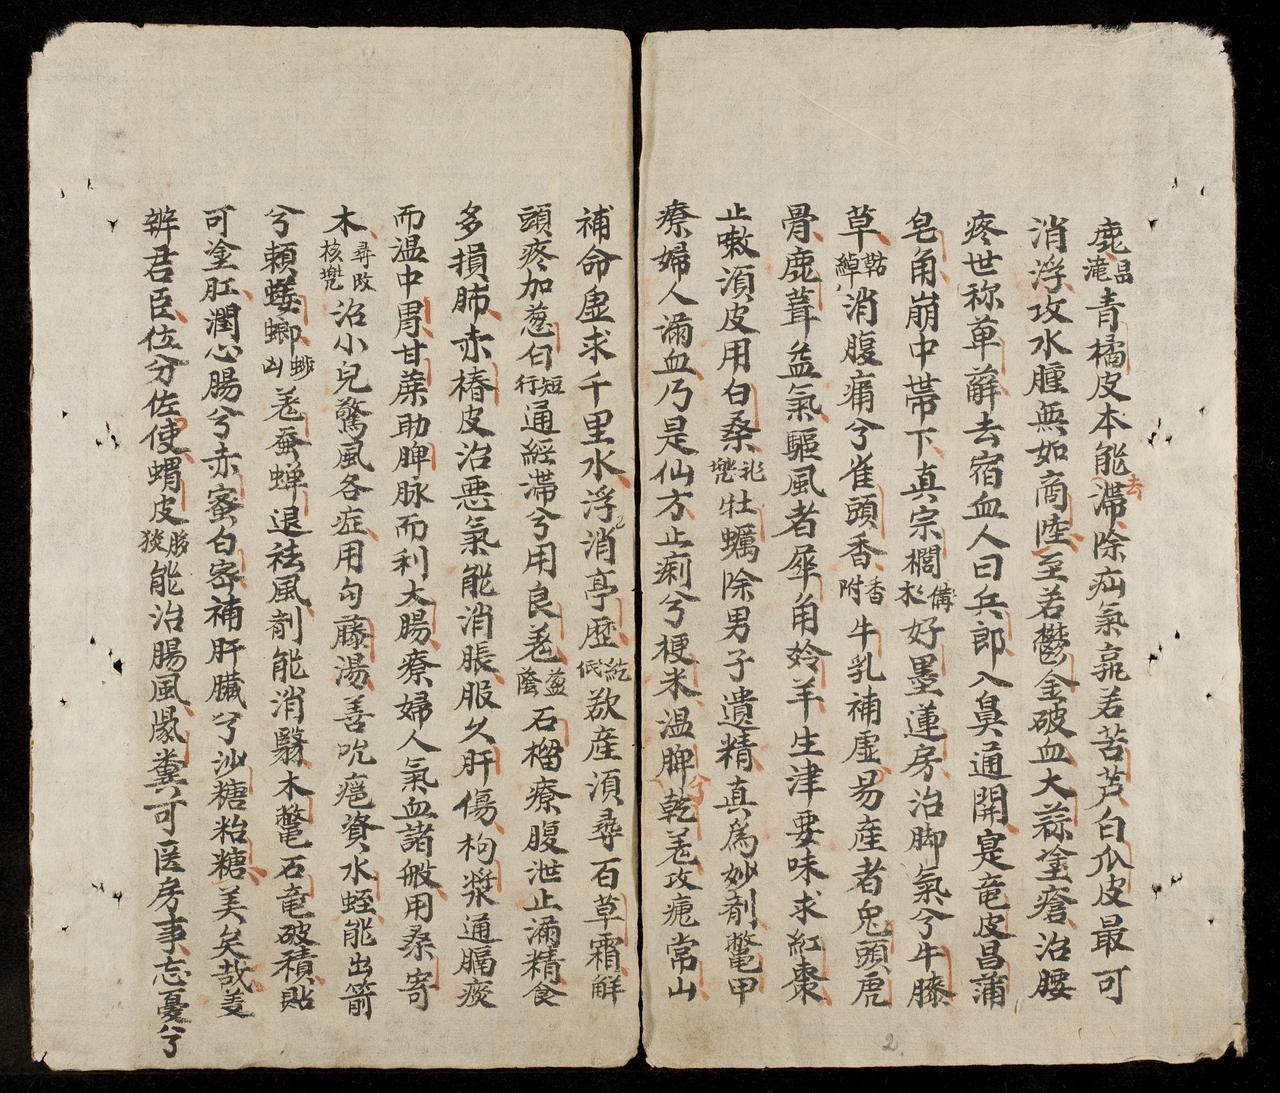 鹿滝昌青橘皮本能滯去除疝氣嘉若苦芦白瓜皮最可
消浮攻水腫無如商陸至若鬱金破血大蒜塗瘡治腰
疼世称萆薢去宿血人曰兵郎入鼻通開寔竜皮昌蒲
皂角崩中帶下真宗櫚備水好墨蓮房治脚氣兮牛膝
草綽苦消腹痛兮雀頭香香附牛乳補虚易産者兔頭虎
骨鹿茸益氣驅風者犀角羚羊生津要味求紅棗
止嗽湏皮用白桑牡蠣除男子遺精真為妙剤鱉甲
療婦人滿血乃是仙方止痢兮梗米温脾兮乾姜攻瘧常山
補命虚求千里水浮消亭歷欲産湏尋百草霜觧
頭疼加葱白短行通經滯兮用良姜石榴療腹泄止滿精食
多損肺赤椿皮治惡氣能消脹服久肝傷枸漿通膈痰
而温中胃甘蔗助脾脉而利大腸療婦人氣血諸般用桑寄
木尋改核治小兒驚風各症用勾藤湯善吮瘧資水蛭能出箭
兮頼螻蜋姜蚕蝉退祛風剤能消翳木鱉石竜破積貼
可塗肛潤心腸兮赤蜜白蜜補肝臟兮沙糖粘糖美矣哉羌
辨君臣位分佐使蝟皮能治腸風䑕糞可医房事忘憂兮
2